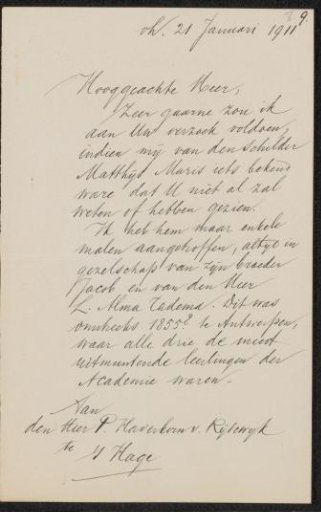 9.
21 Januari 1911
Hooggeachte Heer,
Zeer gaarne zou ik
aan Uw verzoek voldoen,
indien mij van den schilder
Matthijs Maris iets bekend
ware dat U niet al zal
weten of hebben gezien.
Ik heb hem maar enkele
malen aangetroffen, altijd in
gezelschap van zijn broeder
Jacob en van den Heer
L. Alma Tadema. Dit was
omstreeks 1855? te Antwerpen,
waar alle drie de meest
uitmuntende leerlingen der
Academie waren.
Aan
den Heer P. Haverkorn v. Rijsewyk
te
's Hage